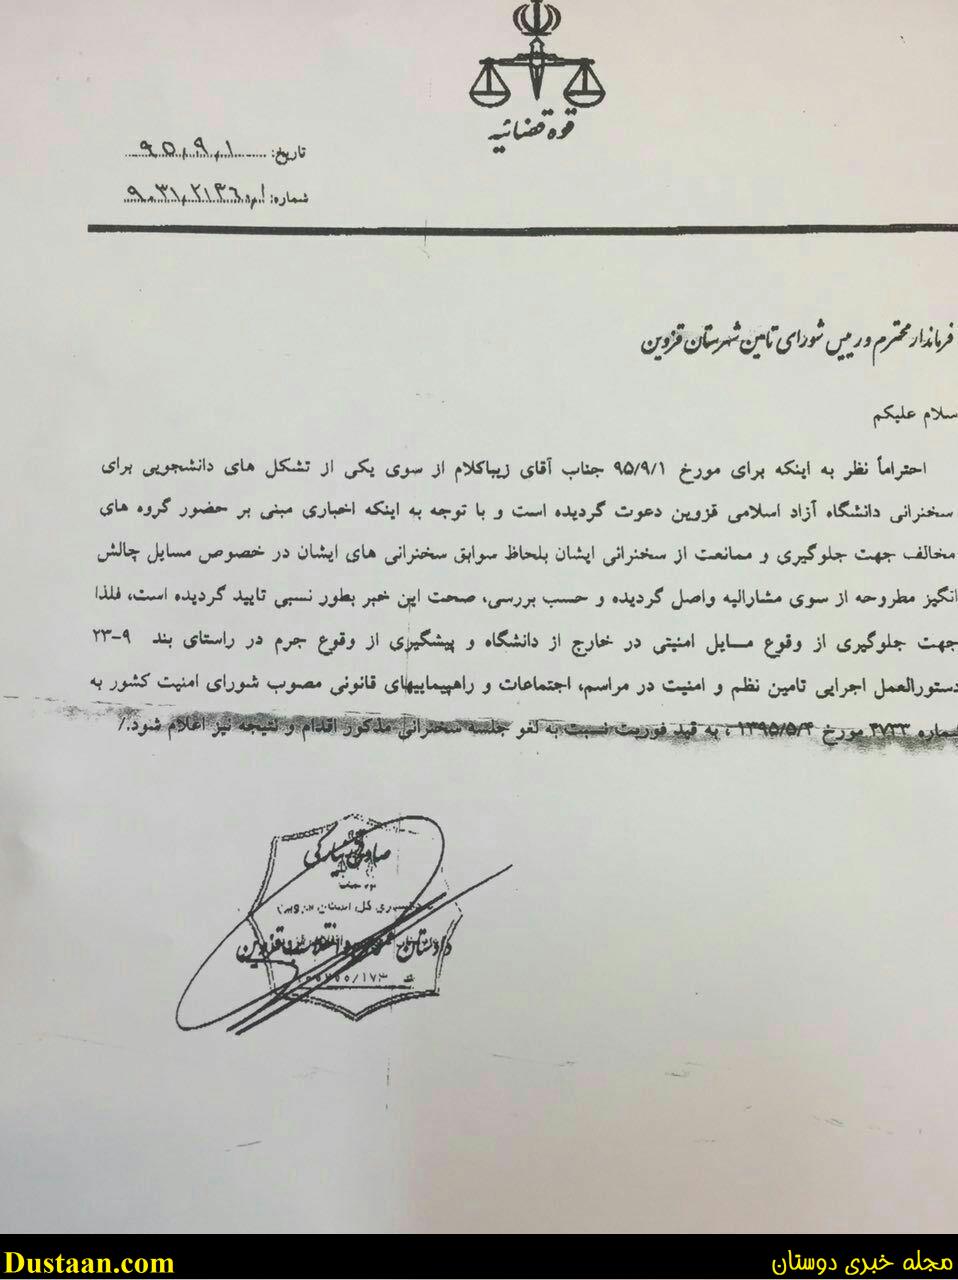 قوه قضائیه
تاریخ: ۹۵/۹/۱
شماره:
فرماندار محترم و رییس شورای تامین شهرستان قزوین
سلام علیکم
احتراماً نظر به اینکه برای مورخ ۹۵/۹/۱ جناب آقای زیباکلام از سوی یکی از تشکل های دانشجویی برای
سخنرانی دانشگاه آزاد اسلامی قزوین دعوت گردیده است و با توجه به اینکه اخباری مبنی بر حضور گروه های
مخالف جهت جلوگیری و ممانعت از سخنرانی ایشان بلحاظ سوابق سخنرانی های ایشان در خصوص مسایل چالش
انگیز مطروحه از سوی مشارالیه واصل گردیده و حسب بررسی، صحت این خبر بطور نسبی تایید گردیده است، فلذا
جهت جلوگیری از وقوع مسایل امنیتی در خارج از دانشگاه و پیشگیری از وقوع جرم در راستای بند ۹-۲۳
دستورالعمل اجرایی تامین نظم و امنیت در مراسم، اجتماعات و راهپیماییهای قانونی مصوب شورای امنیت کشور به
شماره ۳۷۲۳ مورخ ۱۳۹۵/۵/۴ ، به قید فوریت نسبت به لغو جلسه سخنرانی مذکور اقدام و نتیجه نیز اعلام شود./
دادستان عمومی و انقلاب قزوین
Dustaan.com
مجله خبری دوستان